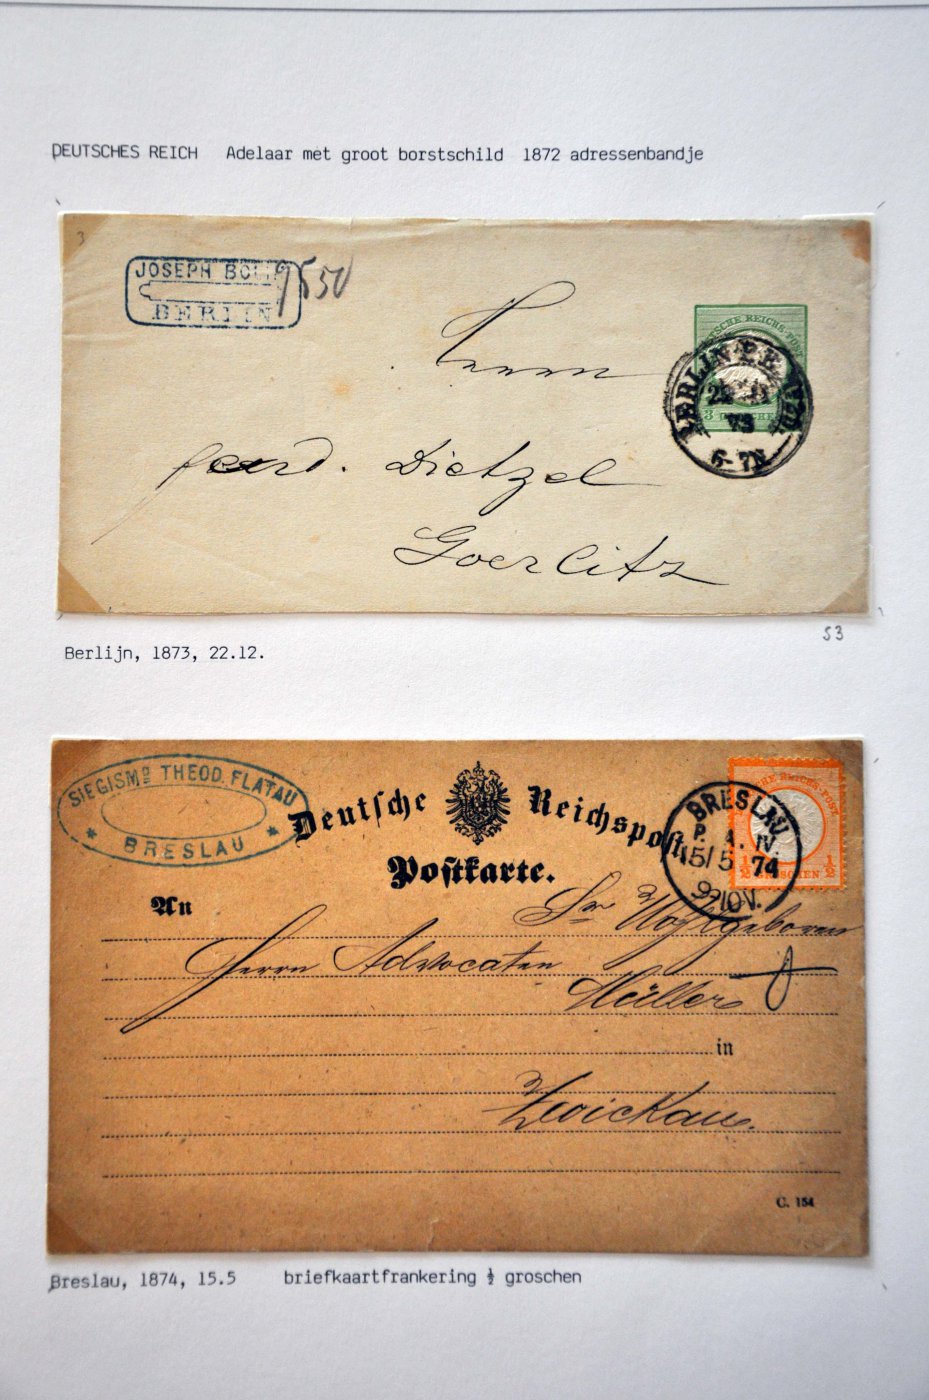 DEUTSCHES REICH Adelaar met groot borstschild 1872 adressenbandje
3
JOSEPH
BERLIN
9550
Herrn
Ferd. Dietzel
Goerlitz
REICHS-POST
3
BERLIN P.E.
73
6-7N
53
Berlijn, 1873, 22.12.
SIEGISMD THEOD. FLATAU
* BRESLAU *
Deutsche Reichspost
Postkarte.
REICHS-POST
½ GROSCHEN ½
BRESLAU
P. A. IV.
15/5 74
9-10V.
An
Sr Wohlgeboren
Herrn Advocaten
Müller
in
Zwickau.
C. 154
Breslau, 1874, 15.5 briefkaartfrankering ½ groschen